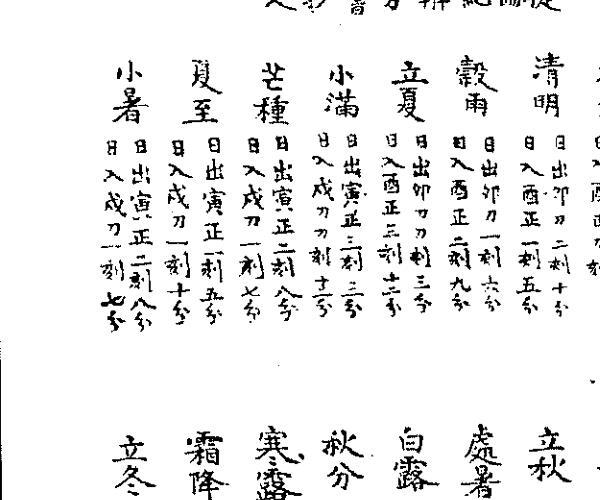 清明
日出卯刀二刻十分
日入酉正一刻五分
穀雨
日出卯刀一刻六分
日入酉正二刻九分
立夏
日出卯刀刀刻三分
日入酉正三刻十二分
小滿
日出寅正三刻三分
日入戌刀刀刻十二分
芒種
日出寅正二刻八分
日入戌刀一刻七分
夏至
日出寅正一刻五分
日入戌刀一刻十分
小暑
日出寅正二刻八分
日入戌刀一刻七分
立秋
處暑
白露
秋分
寒露
霜降
立冬